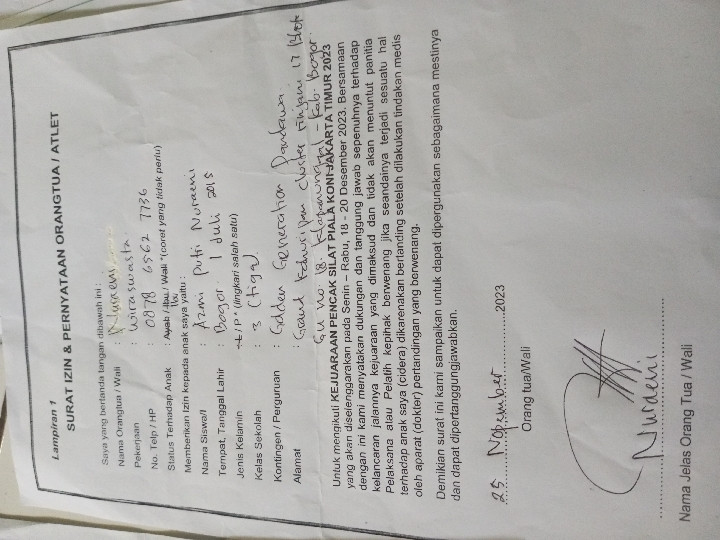 Lampiran 1
SURAT IZIN & PERNYATAAN ORANGTUA / ATLET
Saya yang bertanda tangan dibawah ini :
Nama Orangtua / Wali : Nuraeni
Pekerjaan : Wiraswasta
No. Telp / HP : 0878 6562 7736
Status Terhadap Anak : Ayah / Ibu / Wali *(coret yang tidak perlu)
Ibu
Memberikan Izin kepada anak saya yaitu :
Nama Siswa/I : Azmi Putri Nuraeni
Tempat, Tanggal Lahir : Bogor. 1 Juli 2015
Jenis Kelamin : L / P * (lingkari salah satu)
Kelas Sekolah : 3 (Tiga)
Kontingen / Perguruan : Golden Generation Pandawa
Alamat : Grand Kahuripan cluster Rinjani 17 Blok
GU no. 18. Klapanunggal - Kab. Bogor.
Untuk mengikuti KEJUARAAN PENCAK SILAT PIALA KONI JAKARTA TIMUR 2023
yang akan diselenggarakan pada Senin – Rabu, 18 - 20 Desember 2023. Bersamaan
dengan ini kami menyatakan dukungan dan tanggung jawab sepenuhnya terhadap
kelancaran jalannya kejuaraan yang dimaksud dan tidak akan menuntut panitia
Pelaksana atau Pelatih kepihak berwenang jika seandainya terjadi sesuatu hal
terhadap anak saya (cidera) dikarenakan bertanding setelah dilakukan tindakan medis
oleh aparat (dokter) pertandingan yang berwenang.
Demikian surat ini kami sampaikan untuk dapat dipergunakan sebagaimana mestinya
dan dapat dipertanggungjawabkan.
25 Nopember 2023
Orang tua/Wali
Nuraeni
Nama Jelas Orang Tua / Wali